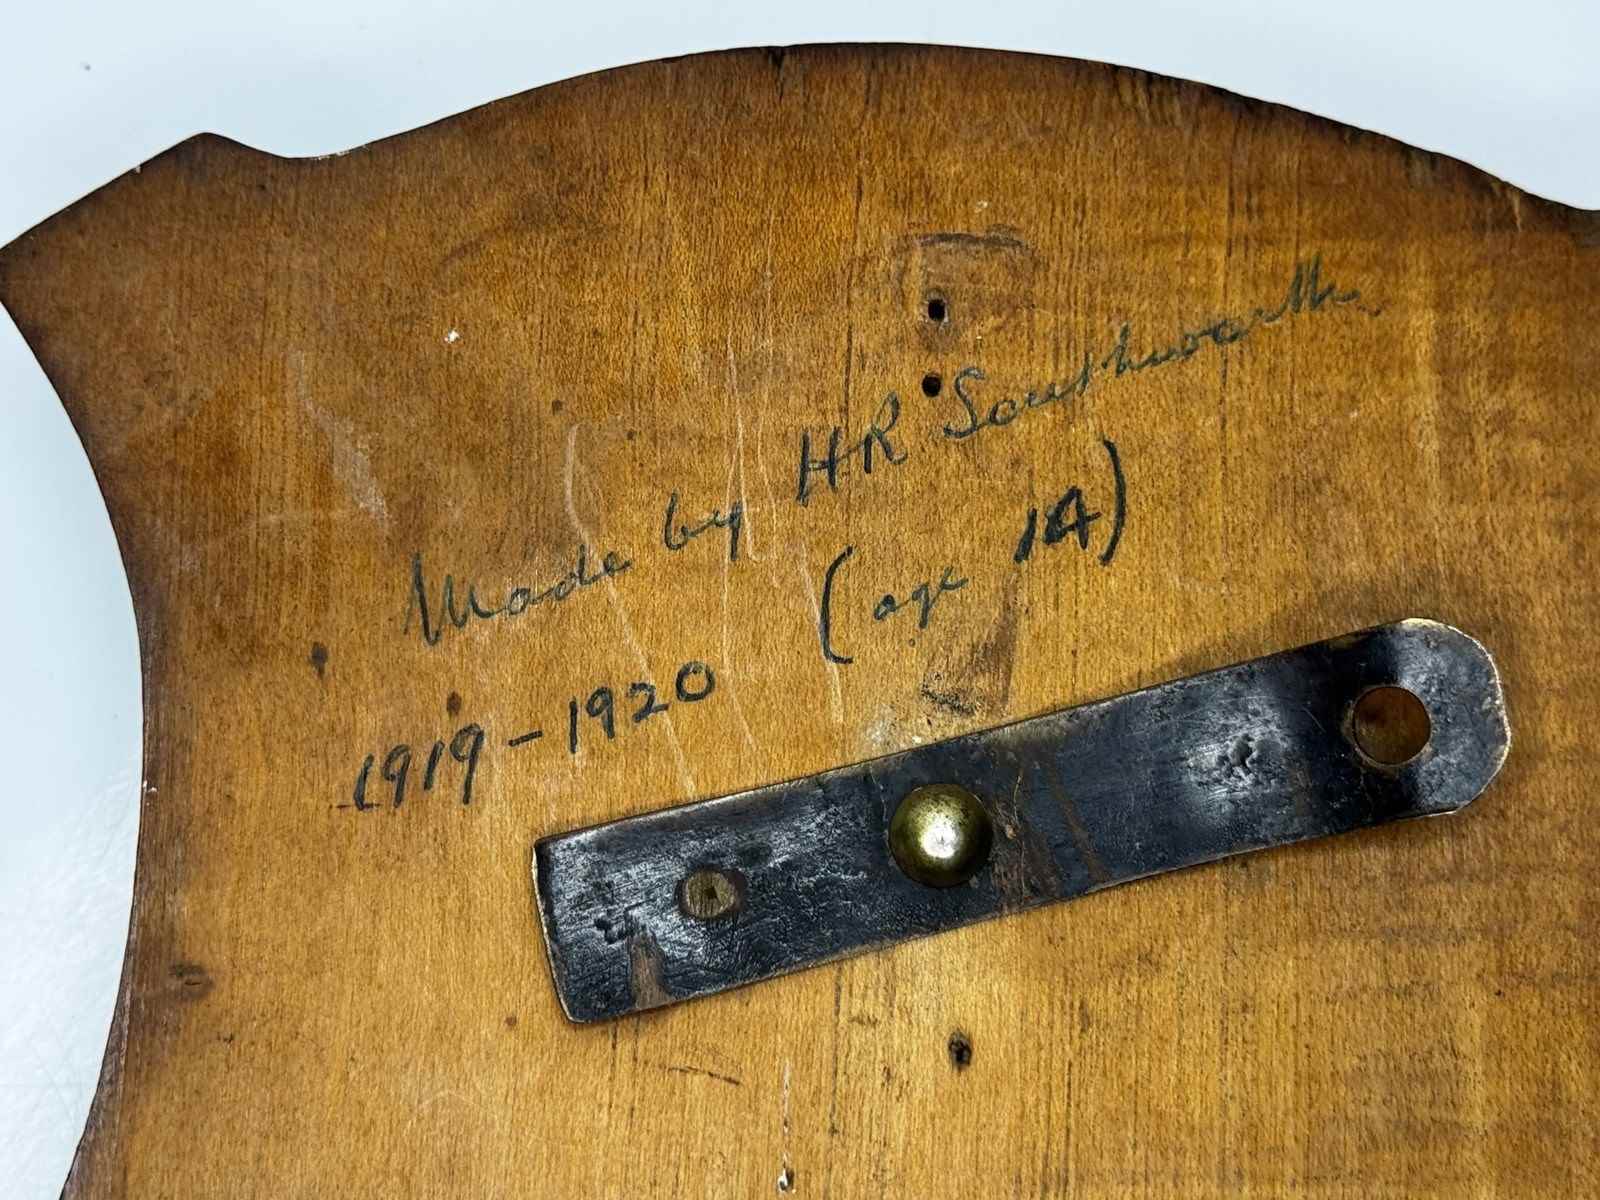 Made by HR Southworth
(age 14)
1919-1920